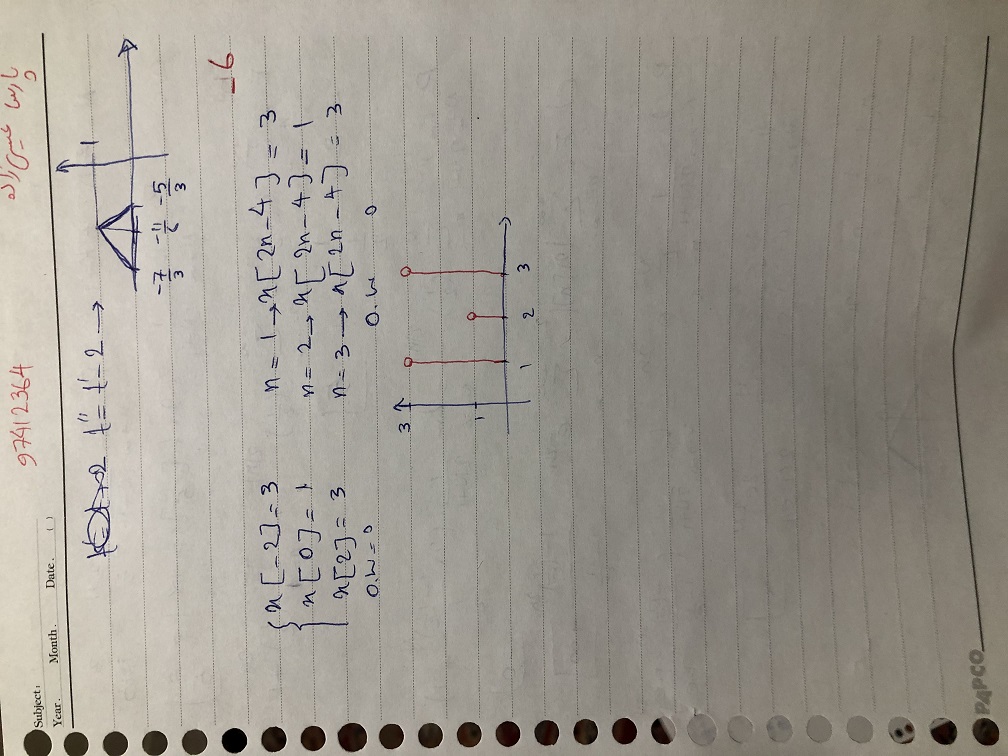 Subject:
Year. Month. Date. ( )
97412364
پارسا عیسی زاده
t'' = t' - 2 →
1
-7/3 -11/6 -5/3
6 -
x[-2] = 3 n = 1 → x[2n-4] = 3
x[0] = 1 n = 2 → x[2n-4] = 1
x[2] = 3 n = 3 → x[2n-4] = 3
O.W = 0 O.W 0
3
1
1 2 3
PAPCO